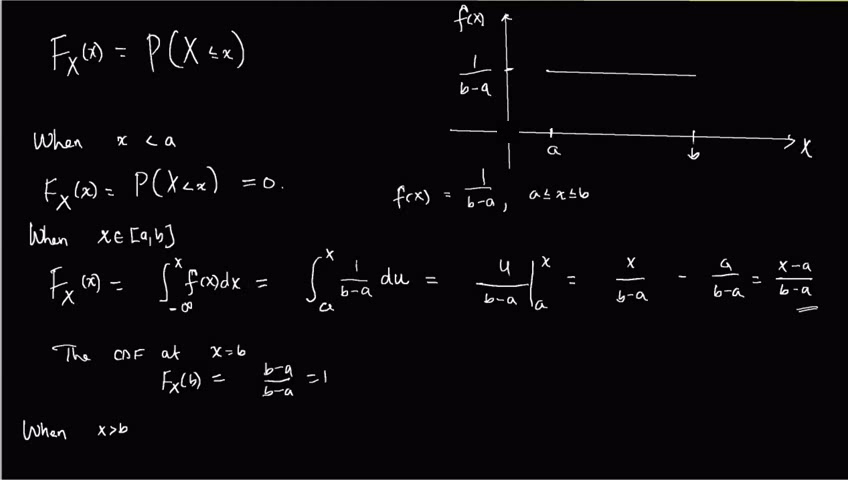 F_X(x) = P(X ≤ x)
f(x)
1/(b-a)
a
b
X
When x < a
F_X(x) = P(X<x) = 0.
f(x) = 1/(b-a), a ≤ x ≤ b
When x ∈ [a,b]
F_X(x) = ∫_{-∞}^{x} f(x)dx = ∫_a^x 1/(b-a) du = u/(b-a) |_a^x = x/(b-a) - a/(b-a) = (x-a)/(b-a)
The CDF at x=b
F_X(b) = (b-a)/(b-a) = 1
When x>b